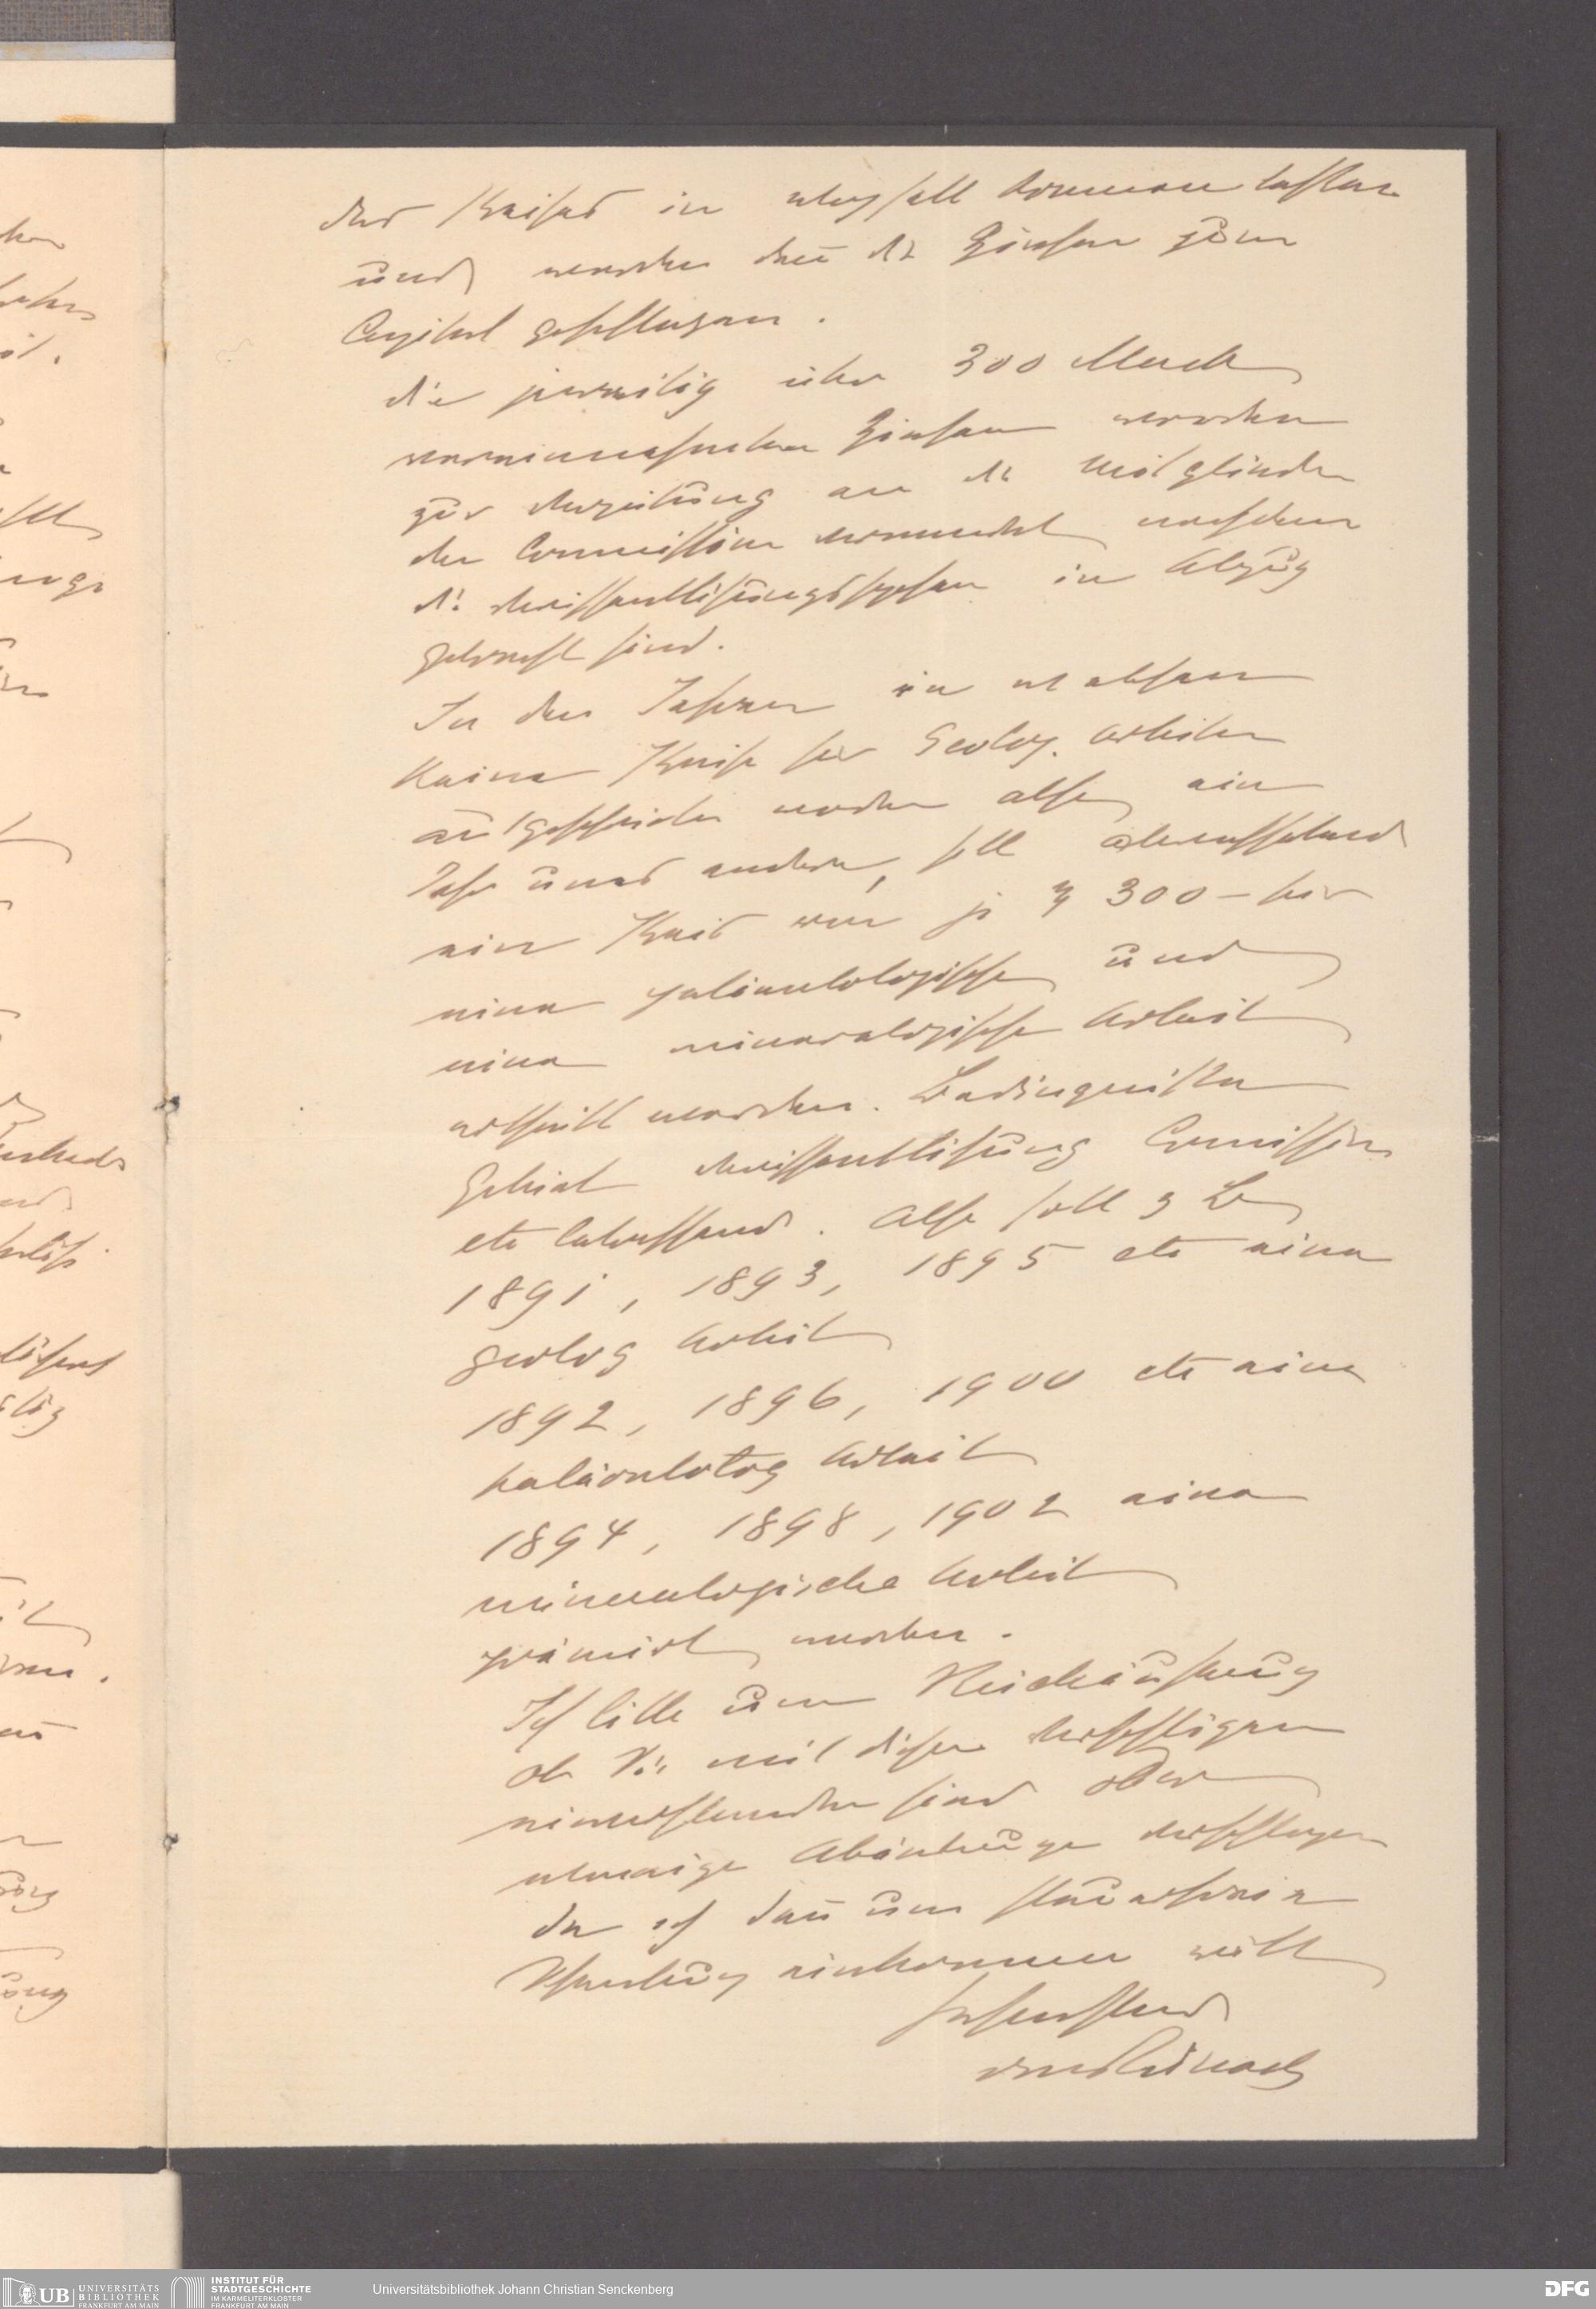 des Preises in wegfall kommen lassen
und werden dann die Zinsen zum
Capital geschlagen.
die jeweilig über 300 Mark
vereinnahmten Zinsen werden
zur Verteilung an die Mitglieder
der Commission verwendet nachdem
die Veröffentlichungsspesen in Abzug
gebracht sind.
In den Jahren in welchen
keine Preise für Geolog. Arbeiten
ausgeschrieben werden also ein
Jahr ums andere, soll abwechselnd
ein Preis von je M 300 – für
eine paläontologische und
eine mineralogische Arbeit
ertheilt werden. Bedingnisse
Gebiet Veröffentlichung Comission
etc. Also soll z B
1891, 1893, 1895 etc eine
geolog Arbeit
1892, 1896, 1900 etc eine
paläontolog Arbeit
1894, 1898, 1902 eine
mineralogische Arbeit
prämirt werden.
Ich bitte um Rückäußerung
ob Sie mit diesen Vorschlägen
einverstanden sind oder
etwaige Abänderunge vorschlagen
da ich dann um steuerfreie
Schenkung einkommen will
hochachtend
von Reinach
UB UNIVERSITÄTS
BIBLIOTHEK
FRANKFURT AM MAIN
INSTITUT FÜR
STADTGESCHICHTE
IM KARMELITERKLOSTER
FRANKFURT AM MAIN
Universitätsbibliothek Johann Christian Senckenberg
DFG